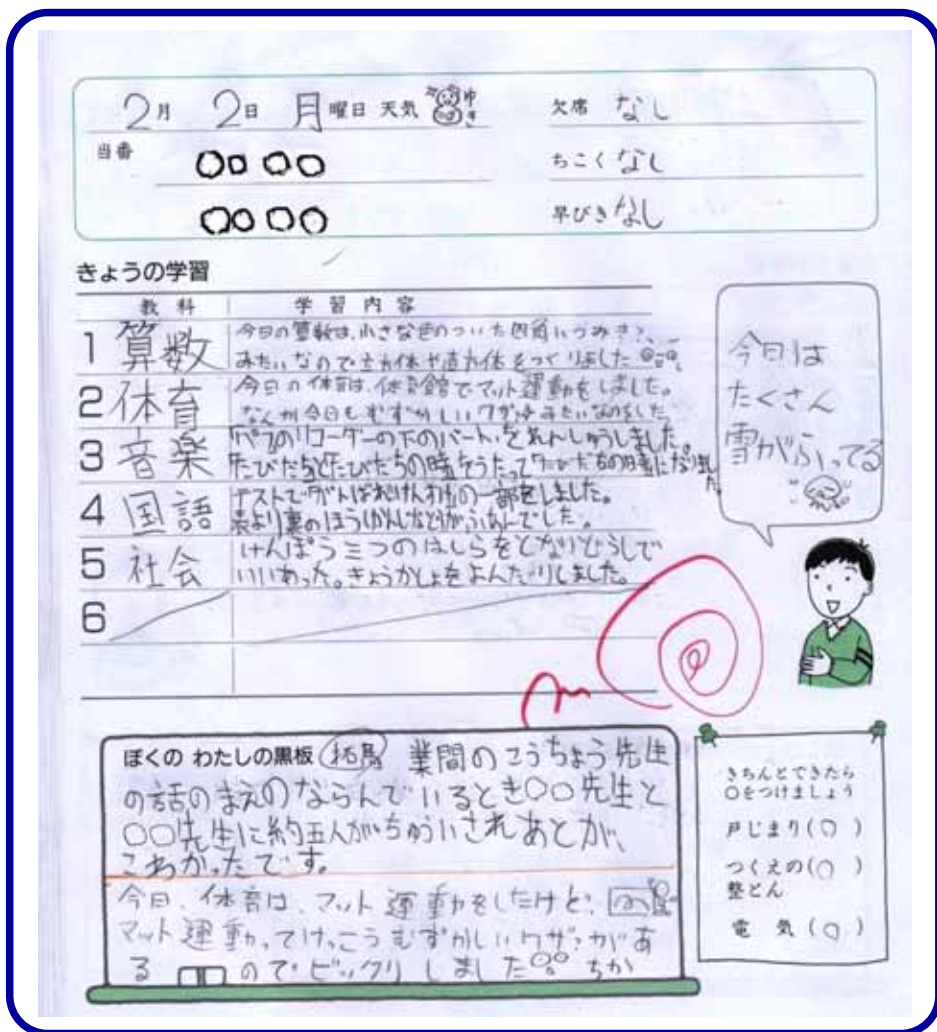 2月 2日 月曜日 天気 ゆき
欠席 なし
当番 〇〇 〇〇
ちこく なし
〇〇 〇〇
早びき なし
きょうの学習
教科 学習内容
1 算数 今日の算数は、小さな色のついた四角いつみき?、
みたいなので立方体や直方体をつくりました
2 体育 今日の体育は、体育館でマット運動をしました。
なんか今日もむずかしいワザみたいなのをした
3 音楽 のリコーダーの下のパートをれんしゅうしました。
たびだちの時をうたって たびだちの時になりました。
4 国語 テストで の一部をしました。
表より裏のほうがかんじなどがふくんでした。
5 社会 けんぽう三つのはしらをとなりどうしで
いいあった。きょうかしょをよんだりしました。
6
今日は
たくさん
雪がふってる
ぼくの わたしの黒板 業間のこうちょう先生
の話のまえのならんでいるとき〇〇先生と
〇〇先生に約五人がちゅういされあとが、
こわかったです。
今日、体育は、マット運動をしたけど、
マット運動って、けっこうむずかしいワザがあ
る ので ビックリしました ちか
きちんとできたら
〇をつけましょう
戸じまり(〇)
つくえの(〇)
整とん
電気(〇)